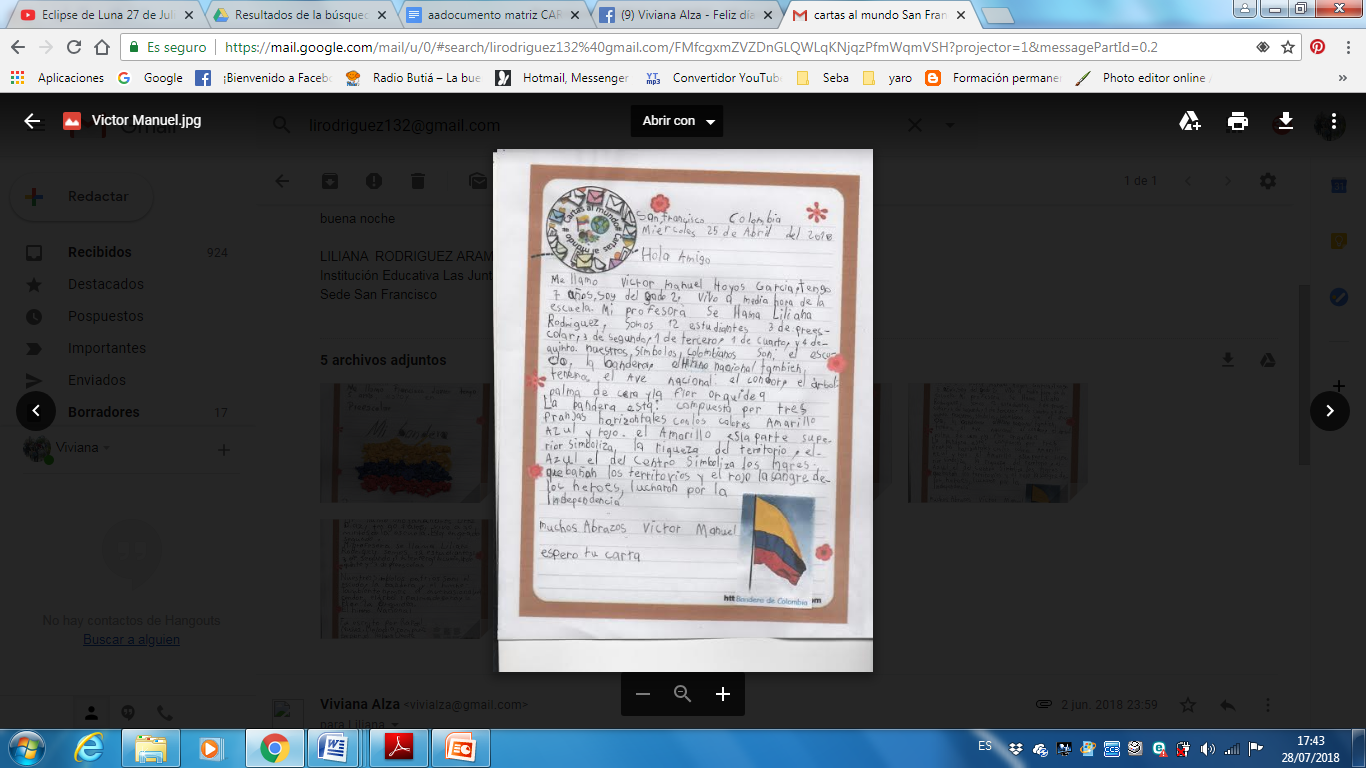 Eclipse de Luna 27 de Jul
Resultados de la búsqued
aadocumento matriz CAR
(9) Viviana Alza - Feliz día
cartas al mundo San Fran
Es seguro
https://mail.google.com/mail/u/0/#search/lirodriguez132%40gmail.com/FMfcgxmZVZDnGLQWLqKNjqzPfmWqmVSH?projector=1&messagePartId=0.2
Aplicaciones
Google
¡Bienvenido a Faceb
Radio Butiá – La bue
Hotmail, Messenger
Convertidor YouTub
Seba
yaro
Formación permane
Photo editor online
»
Victor Manuel.jpg
Abrir con
lirodriguez132@gmail.com
Redactar
1 de 1
buena noche
Recibidos 924
LILIANA RODRIGUEZ ARAM
Destacados
Institución Educativa Las Junt
Sede San Francisco
Pospuestos
Importantes
Enviados
5 archivos adjuntos
Borradores 17
Viviana
No hay contactos de Hangouts
Buscar a alguien
Cartas al mundo
San Francisco Colombia
Miercoles 25 de Abril del 2018
Hola Amigo
Me llamo Victor Manuel Hoyos Garcia, Tengo
7 años, soy del grado 2, vivo a media hora de la
escuela. Mi profesora se llama Liliana
Rodriguez, Somos 12 estudiantes 3 de prees-
colar, 3 de segundo, 1 de tercero, 1 de cuarto, y 4 de
quinto. nuestros simbolos colombianos son, el escu-
do, la bandera, el Himno nacional tambien,
tenemo. el Ave nacional: el condor, el árbol
palma de cera y la flor orquidea
La bandera está: compuesta por tres
franjas horizontales con los colores Amarillo
Azul y rojo. el Amarillo es la parte supe-
rior simboliza, la riqueza del territorio, el-
Azul el del centro simboliza los mares.
que bañan los territorios y el rojo la sangre de
los heroes, lucharon por la
Independencia
muchos Abrazos Victor Manuel
espero tu carta
htt Bandera de Colombia om
Viviana Alza <vivialza@gmail.com>
2 jun. 2018 23:59
para Liliana
ES
17:43
28/07/2018